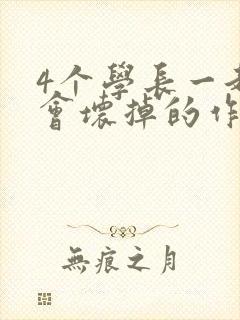 4个學長一
會壞掉的作
無痕之月